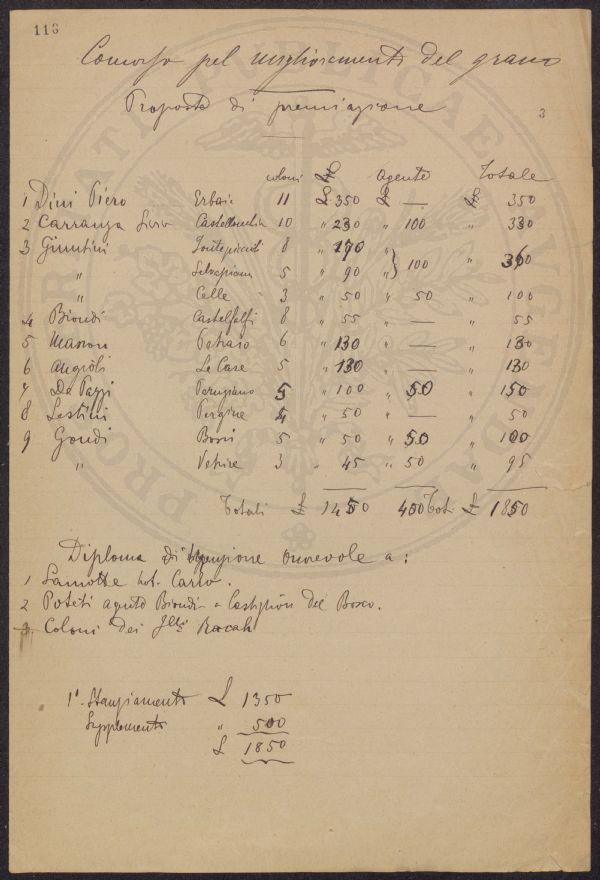 116
Concorso pel miglioramento del grano
Proposta di premiazione
3
coloni £ agente Totale
1 Dini Piero Erbaia 11 £ 350 £ — £ 350
2 Carranza 10 " 230 " 100 " 330
3 Giuntini 8 " 170 "
" Selvapiana 5 " 90 " } 100 " 360
" Celle 3 " 50 " 50 " 100
4 Biondi Castelfalfi 8 " 55 " — " 55
5 Masson Petraio 6 " 130 " — " 130
6 Angioli Le Case 5 " 130 " — " 130
7 De Pazzi 5 " 100 " 50 " 150
8 Sestini Pergine 4 " 50 " — " 50
9 Gondi Bossi 5 " 50 " 50 " 100
" Vetrice 3 " 45 " 50 " 95
Totali £ 1450 400 Tot. £ 1850
Diploma di menzione onorevole a:
1 Lamotte Carlo.
2 Poteti agente Biondi a Castiglion del Bosco.
3. Coloni dei Racah
1º. Stanziamento £ 1350
Supplemento " 500
£ 1850
PRO PUBLICAE